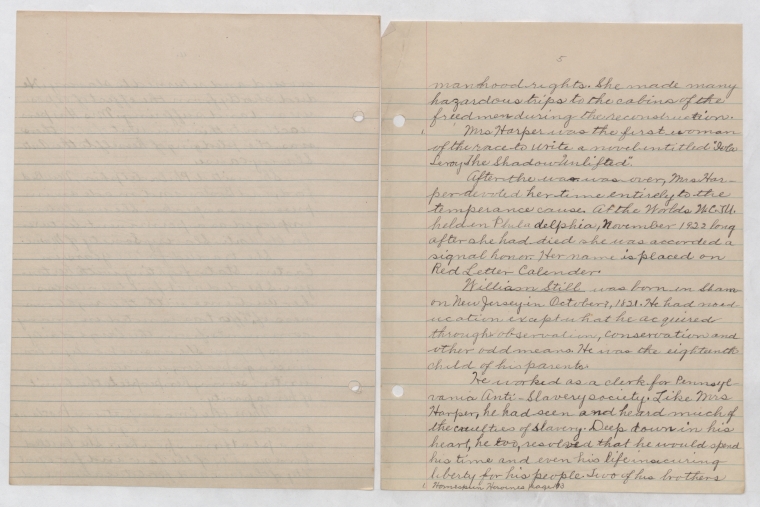 5
manhood rights. She made many
hazardous trips to the cabins of the
freedmen during the reconstruction.
1. Mrs Harper was the first woman
of the race to write a novel entitled "Iola
Leroy The Shadow Unlifted".
After the war was over, Mrs Har-
per devoted her time entirely to the
temperance cause. At the Worlds W.C.T.U.
held in Philadelphia, November 1922 long
after she had died she was accorded a
signal honor. Her name is placed on
Red Letter Calender.
William Still was born in Sham
on New Jersey in October 7, 1821. He had no ed
ucation except what he acquired
through observation, conservation and
other odd means. He was the eighteenth
child of his parents.
He worked as a clerk for Pennsyl-
vania Anti-Slavery society. Like Mrs
Harper, he had seen and heard much of
the cruelties of slavery. Deep down in his
heart, he too, resolved that he would spend
his time and even his life in securing
liberty for his people. Two of his brothers
1. Homespun Heroines page